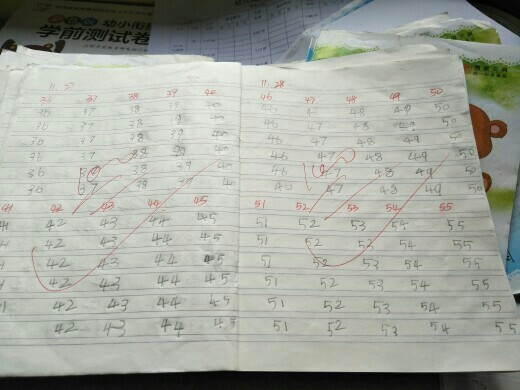 幼小衔
学前测试卷
11.27
36 37 38 39 40
36 37 38 39 40
36 37 38 9 40
36 37 38 39 40
36 37 38 39 40
36 38 39 40
36 37 38 39 40
41 42 43 44 45
41 42 43 44 45
42 43 44 45
42 43 44 45
42 43 44 45
41 42 43 44 45
42 43 44 45
11.28
46 47 48 49 50
46 47 48 49 50
46 47 48 49 50
46 47 48 49 50
46 47 48 49 50
46 47 48 49 50
46 47 48 49 50
51 52 53 54 55
51 52 53 54 55
51 52 53 54 55
51 52 53 54 55
51 52 53 54 55
51 52 53 54 55
51 52 53 54 55